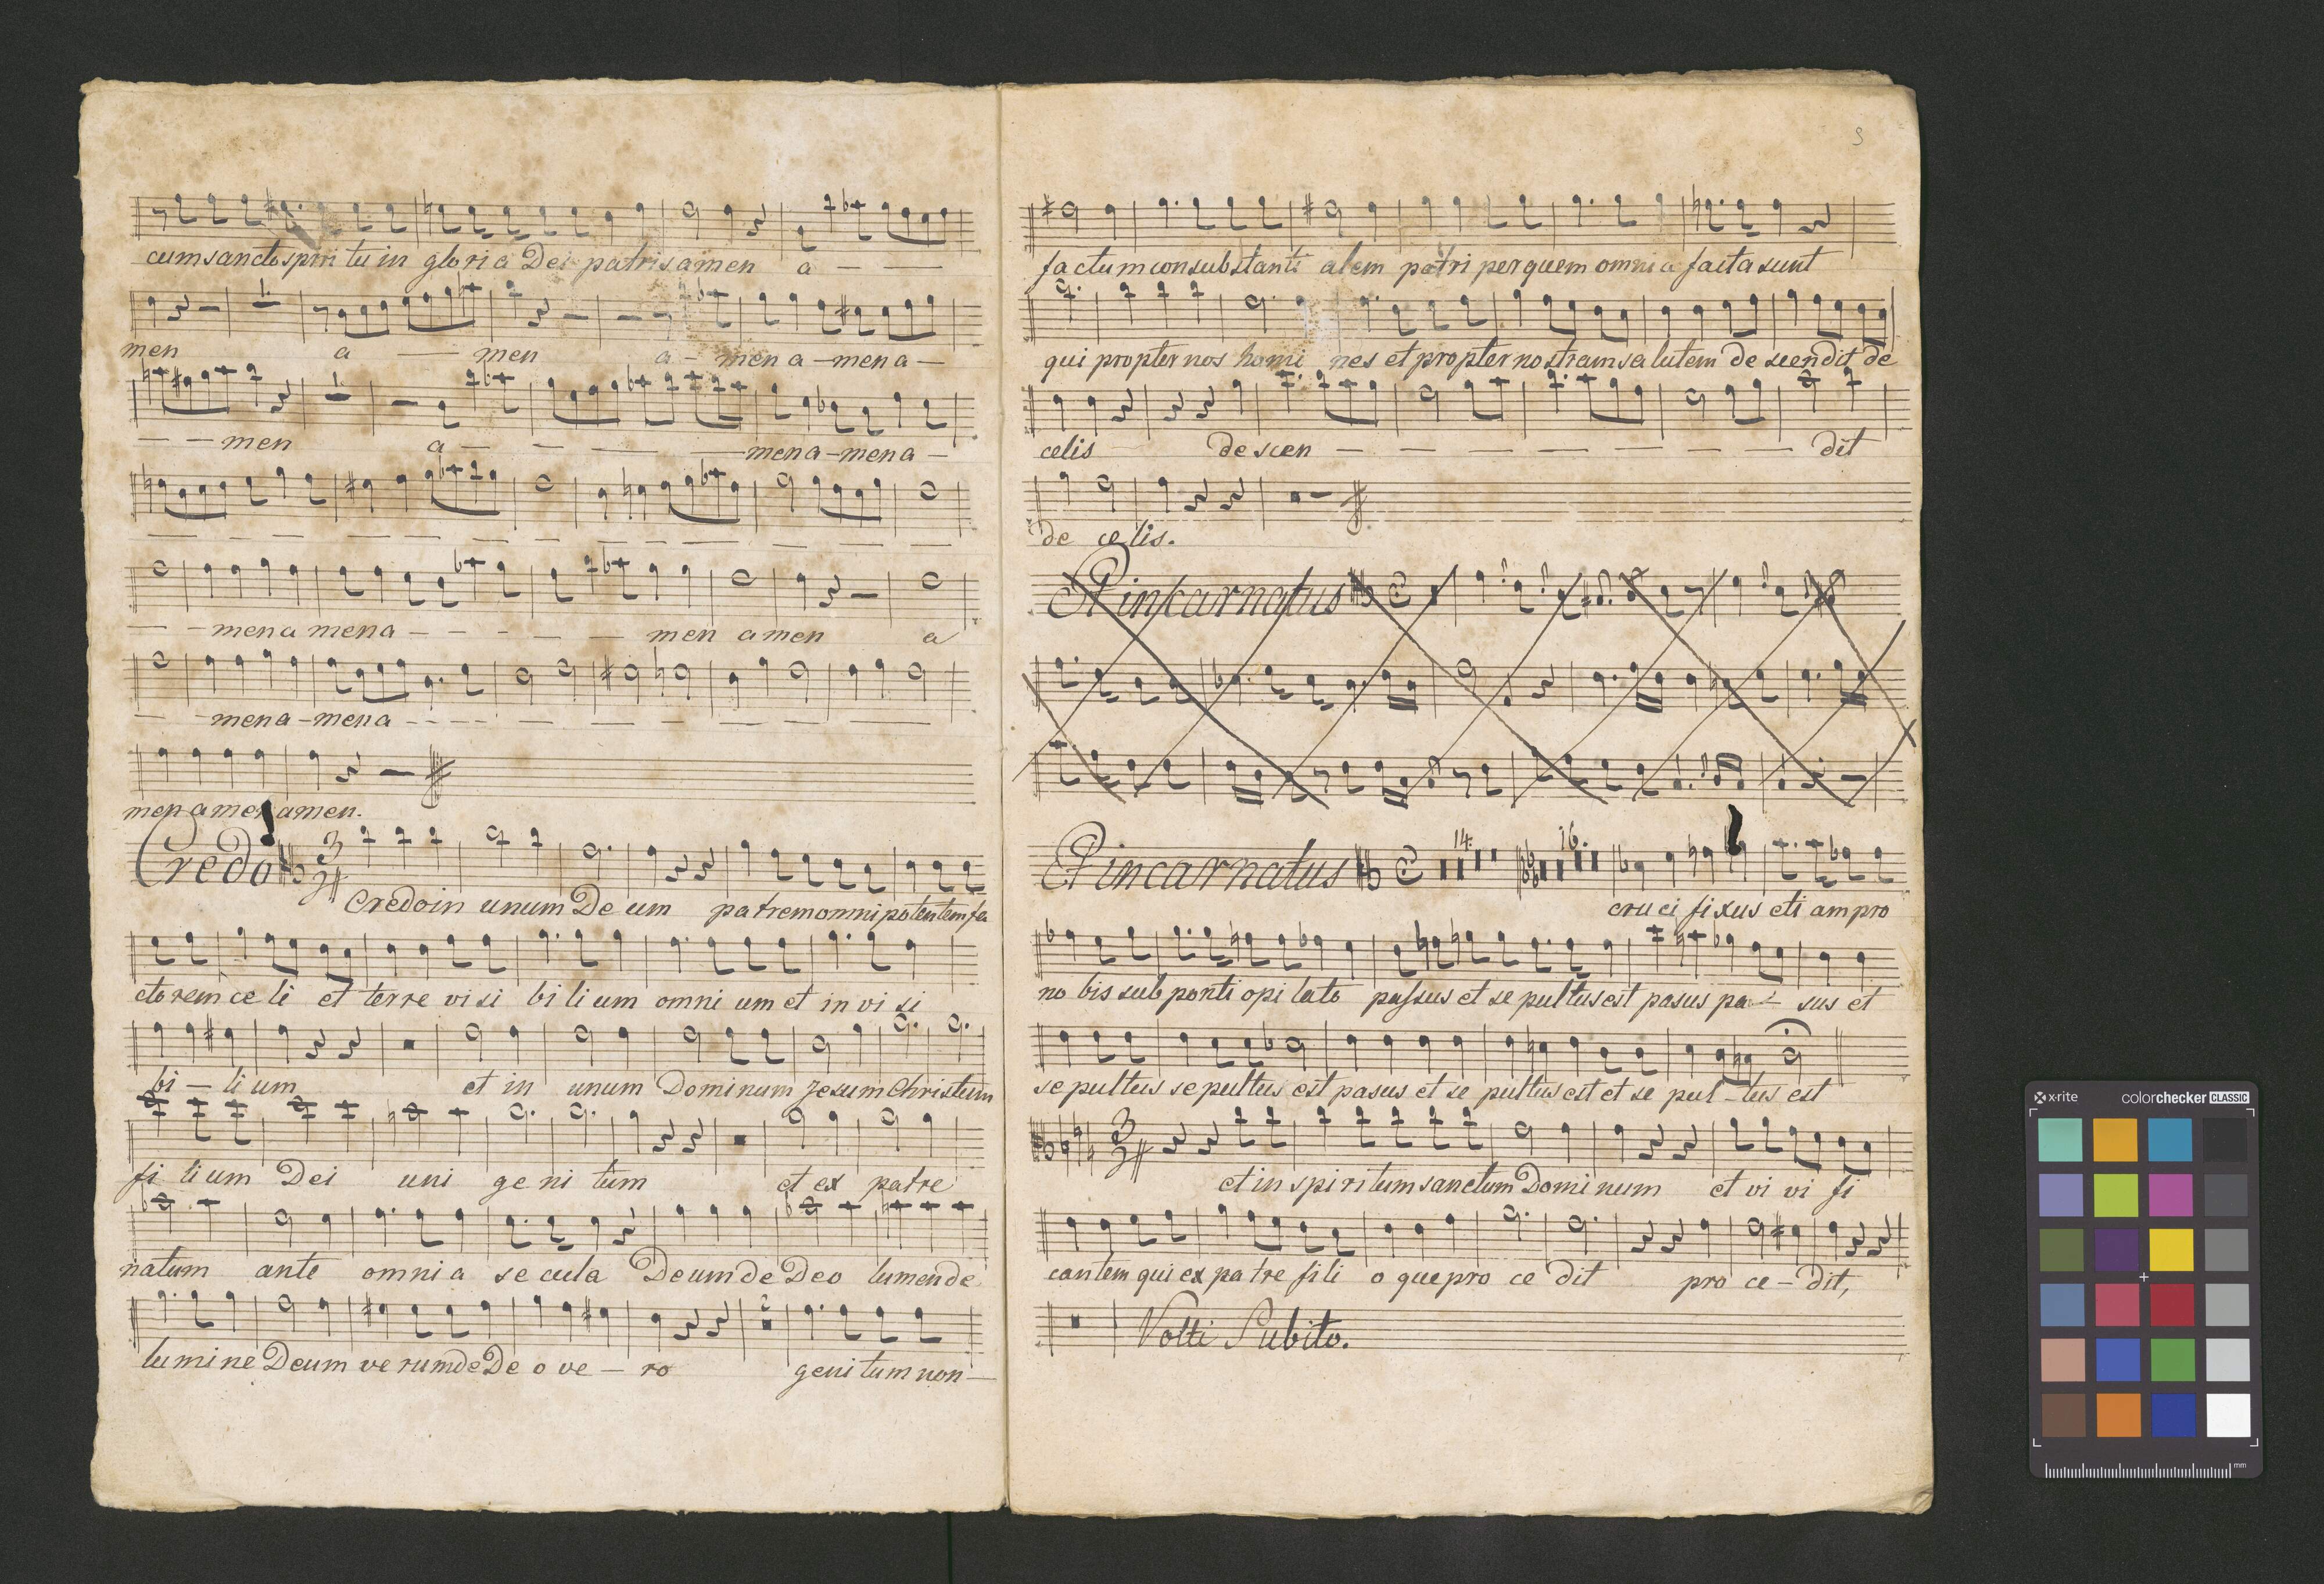 cum sancto spiri tu in gloria Dei patris amen a — — —
men a — men a - men a - men a —
— — men a — — — — men a - men a —
— — — — — — — — — — — —
— - men a men a - - - - — — men amen a
— - men a - men a - - - - — — — — — — —
men a men amen.
Credo 3
Credo in unum De um patrem omni potentem fa
ctorem ce li et terre visi bi li um omni um et in vi si
bi — li um et in unum Dominum Jesum Christum
fi li um Dei uni ge ni tum et ex patre
natum ante omni a se cula Deum de Deo lumen de
lumine Deum ve rum de De o ve — ro geni tum non —
9
factum consubstanti alem patri per quem omnia facta sunt
qui propter nos homi nes et propter nostram salutem de scendit de
celis de scen — — — — — — — — dit
de ce lis.
Et incarnatus
Et incarnatus 14. 16.
cru ci fi xus eti am pro
no bis sub ponti o pi lato passus et se pultus est pasus pa - sus et
se pultus se pultus est pasus et se pultus est et se pul - tus est
3
et in spiritum sanctum Dominum et vi vi fi
cantem qui ex patre fili o que pro ce dit pro ce - dit,
Volti Subito.
x-rite colorchecker CLASSIC
mm